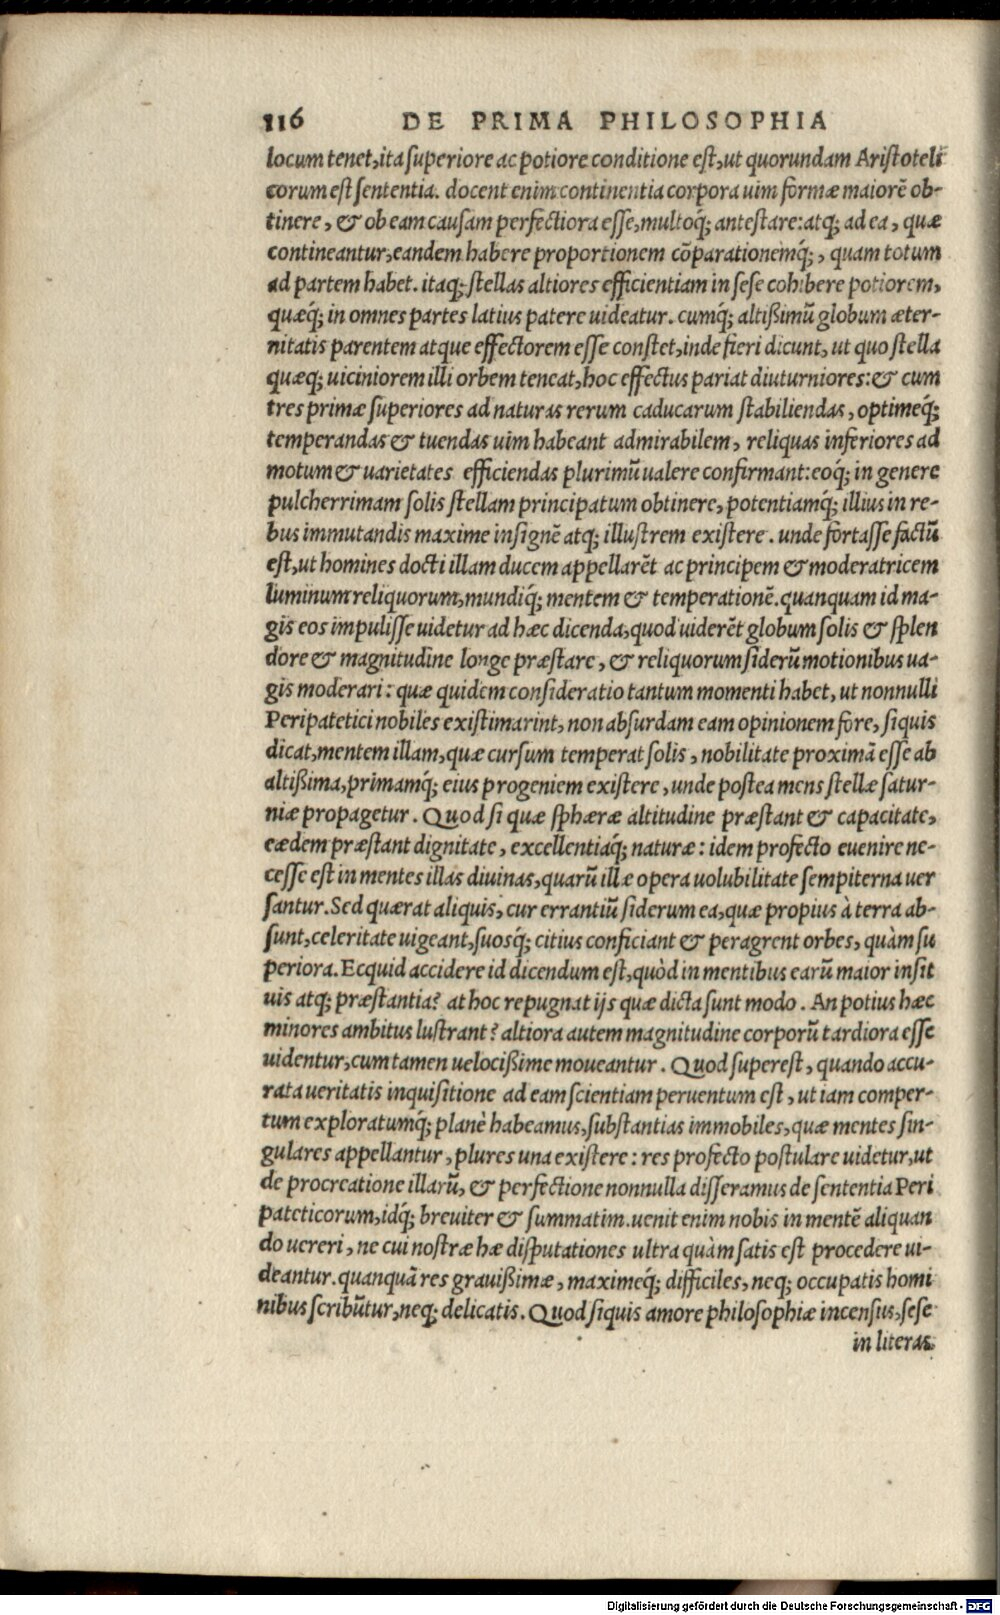 116 DE PRIMA PHILOSOPHIA
locum tenet, ita superiore ac potiore conditione est, ut quorundam Aristoteli
corum est sententia. docent enim continentia corpora uim formæ maiorẽ ob-
tinere, & ob eam causam perfectiora esse, multoq́; antestare: atq; ad ea, quæ
contineantur, eandem habere proportionem cõparationemq́;, quam totum
ad partem habet. itaq; stellas altiores efficientiam in sese cohibere potiorem,
quæq́; in omnes partes latius patere uideatur. cumq́; altißimũ globum æter-
nitatis parentem atque effectorem esse constet, inde fieri dicunt, ut quo stella
quæq; uiciniorem illi orbem teneat, hoc effectus pariat diuturniores: & cum
tres primæ superiores ad naturas rerum caducarum stabiliendas, optimeq́;
temperandas & tuendas uim habeant admirabilem, reliquas inferiores ad
motum & uarietates efficiendas plurimũ ualere confirmant: eoq́; in genere
pulcherrimam solis stellam principatum obtinere, potentiamq́; illius in re-
bus immutandis maxime insignẽ atq; illustrem existere. unde fortasse factũ
est, ut homines docti illam ducem appellarẽt ac principem & moderatricem
luminum reliquorum, mundiq́; mentem & temperationẽ. quanquam id ma-
gis eos impulisse uidetur ad hæc dicenda, quod uiderẽt globum solis & splen
dore & magnitudine longe præstare, & reliquorum siderũ motionibus ua-
gis moderari: quæ quidem consideratio tantum momenti habet, ut nonnulli
Peripatetici nobiles existimarint, non absurdam eam opinionem fore, siquis
dicat, mentem illam, quæ cursum temperat solis, nobilitate proximã esse ab
altißima, primamq́; eius progeniem existere, unde postea mens stellæ satur-
niæ propagetur. Quod si quæ sphæræ altitudine præstant & capacitate,
eædem præstant dignitate, excellentiaq́; naturæ: idem profecto euenire ne-
cesse est in mentes illas diuinas, quarũ illæ opera uolubilitate sempiterna uer
santur. Sed quærat aliquis, cur errantiũ siderum ea, quæ propius à terra ab-
sunt, celeritate uigeant, suosq́; citius conficiant & peragrent orbes, quàm su
periora. Ecquid accidere id dicendum est, quòd in mentibus earũ maior insit
uis atq; præstantia? at hoc repugnat ijs quæ dicta sunt modo. An potius hæc
minores ambitus lustrant? altiora autem magnitudine corporũ tardiora esse
uidentur, cum tamen uelocißime moueantur. Quod superest, quando accu-
rata ueritatis inquisitione ad eam scientiam peruentum est, ut iam comper-
tum exploratumq́; planè habeamus, substantias immobiles, quæ mentes sin-
gulares appellantur, plures una existere: res profecto postulare uidetur, ut
de procreatione illarũ, & perfectione nonnulla disseramus de sententia Peri
pateticorum, idq́; breuiter & summatim. uenit enim nobis in mentẽ aliquan
do uereri, ne cui nostræ hæ disputationes ultra quàm satis est procedere ui-
deantur. quanquã res grauißimæ, maximeq́; difficiles, neq; occupatis homi
nibus scribũtur, neq; delicatis. Quod siquis amore philosophiæ incensus, sese
in literas
Digitalisierung gefördert durch die Deutsche Forschungsgemeinschaft - DFG